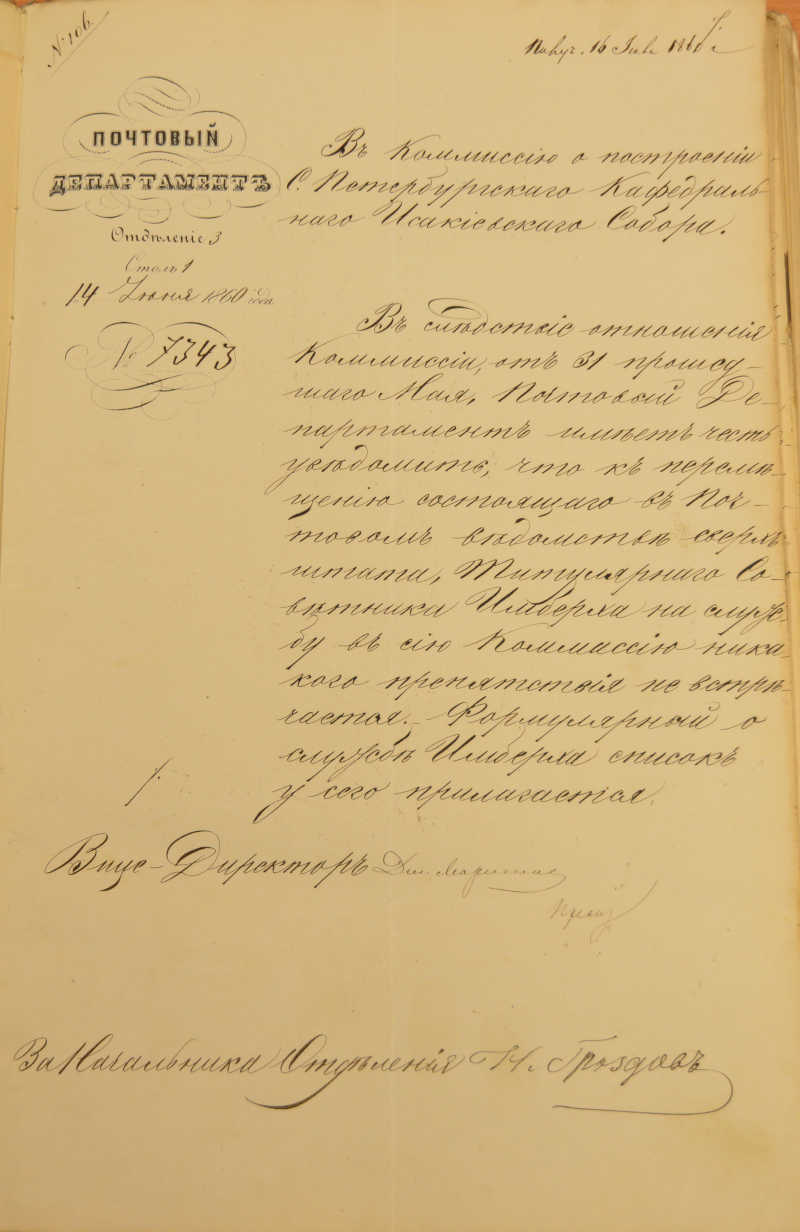 № 106.
16 1860
ПОЧТОВЫЙ
ДЕПАРТАМЕНТЪ
Отдѣленіе 3
Столъ 1
14 Іюня 1860 года
№ 7343
Въ Коммиссію о построеніи
С. Петербургскаго Кафедраль-
наго Исакіевскаго Собора.
Въ слѣдствіе отношенія
Коммиссіи, отъ 31 прошед-
шаго Мая, Почтовый Де-
партаментъ имѣетъ честь
увѣдомить, что къ перемѣ-
щенію состоящаго въ Поч-
товомъ вѣдомствѣ сверхъ
штата, Титулярнаго Со-
вѣтника Имберха на служ-
бу въ сію Коммиссію ника-
кого препятствія не встрѣ-
чается. Формулярный о
службѣ Имберха списокъ
у сего прилагается.
Вице-Директоръ
За Начальника Отдѣленія Н. Гроздовъ